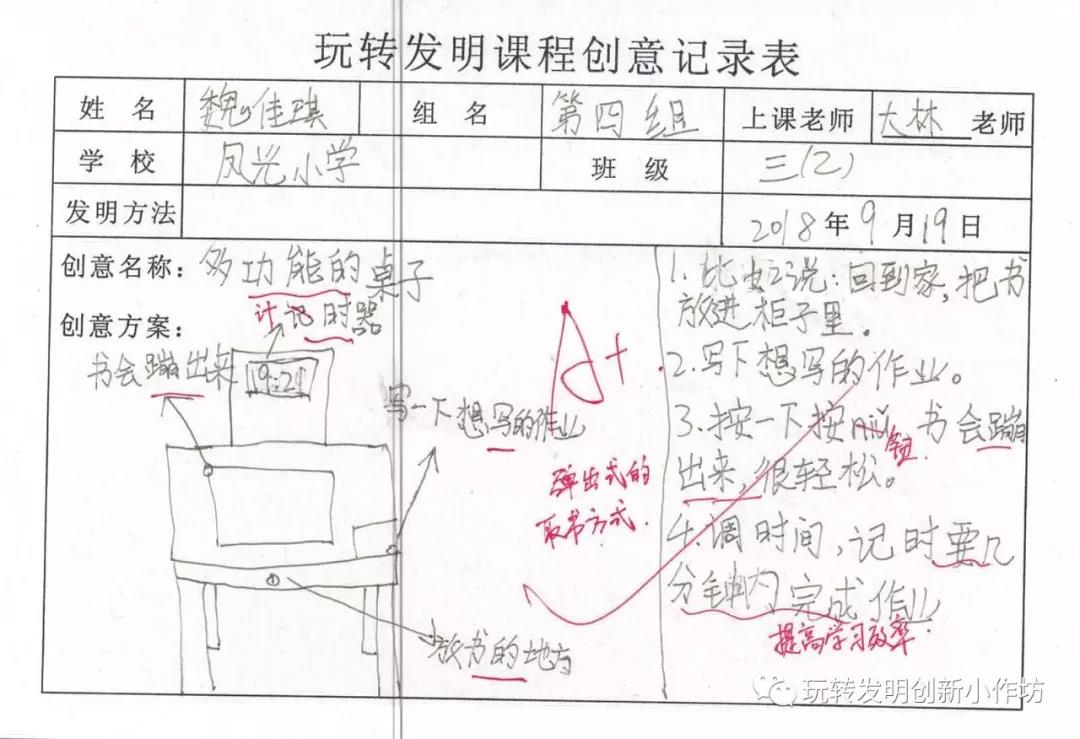 玩转发明课程创意记录表
姓 名 魏佳琪 组 名 第四组 上课老师 大林 老师
学 校 凤光小学 班 级 三(2)
发明方法 2018年9月19日
创意名称：多功能的桌子
创意方案：
计
记时器
书会蹦出来
9:21
写一下想写的作业
放书的地方
A+
弹出式的
取书方式.
1.比如说：回到家，把书
放进柜子里。
2.写下想写的作业。
3.按一下按niǔ，书会蹦
钮
出来，很轻松。
4.调时间，记时要几
分钟内完成作业
提高学习效率.
玩转发明创新小作坊